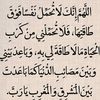 اللَّهُمَّ إِنَّكَ لَا تُحَمِّلُ نَفْسًا فَوْقَ
طَاقَتِهَا فَلَا تُحَمِّلْنِي مِنْ كَرْبِ
الْحَيَاةِ مَا لَا طَاقَةَ لِي بِهِ وَبَاعِدْ بَيْنِي
وَبَيْنَ مَصَائِبِ الدُّنْيَا كَمَا بَاعَدْتَ
بَيْنَ الْمَشْرِقِ وَالْمَغْرِبِ يَا رَبّ